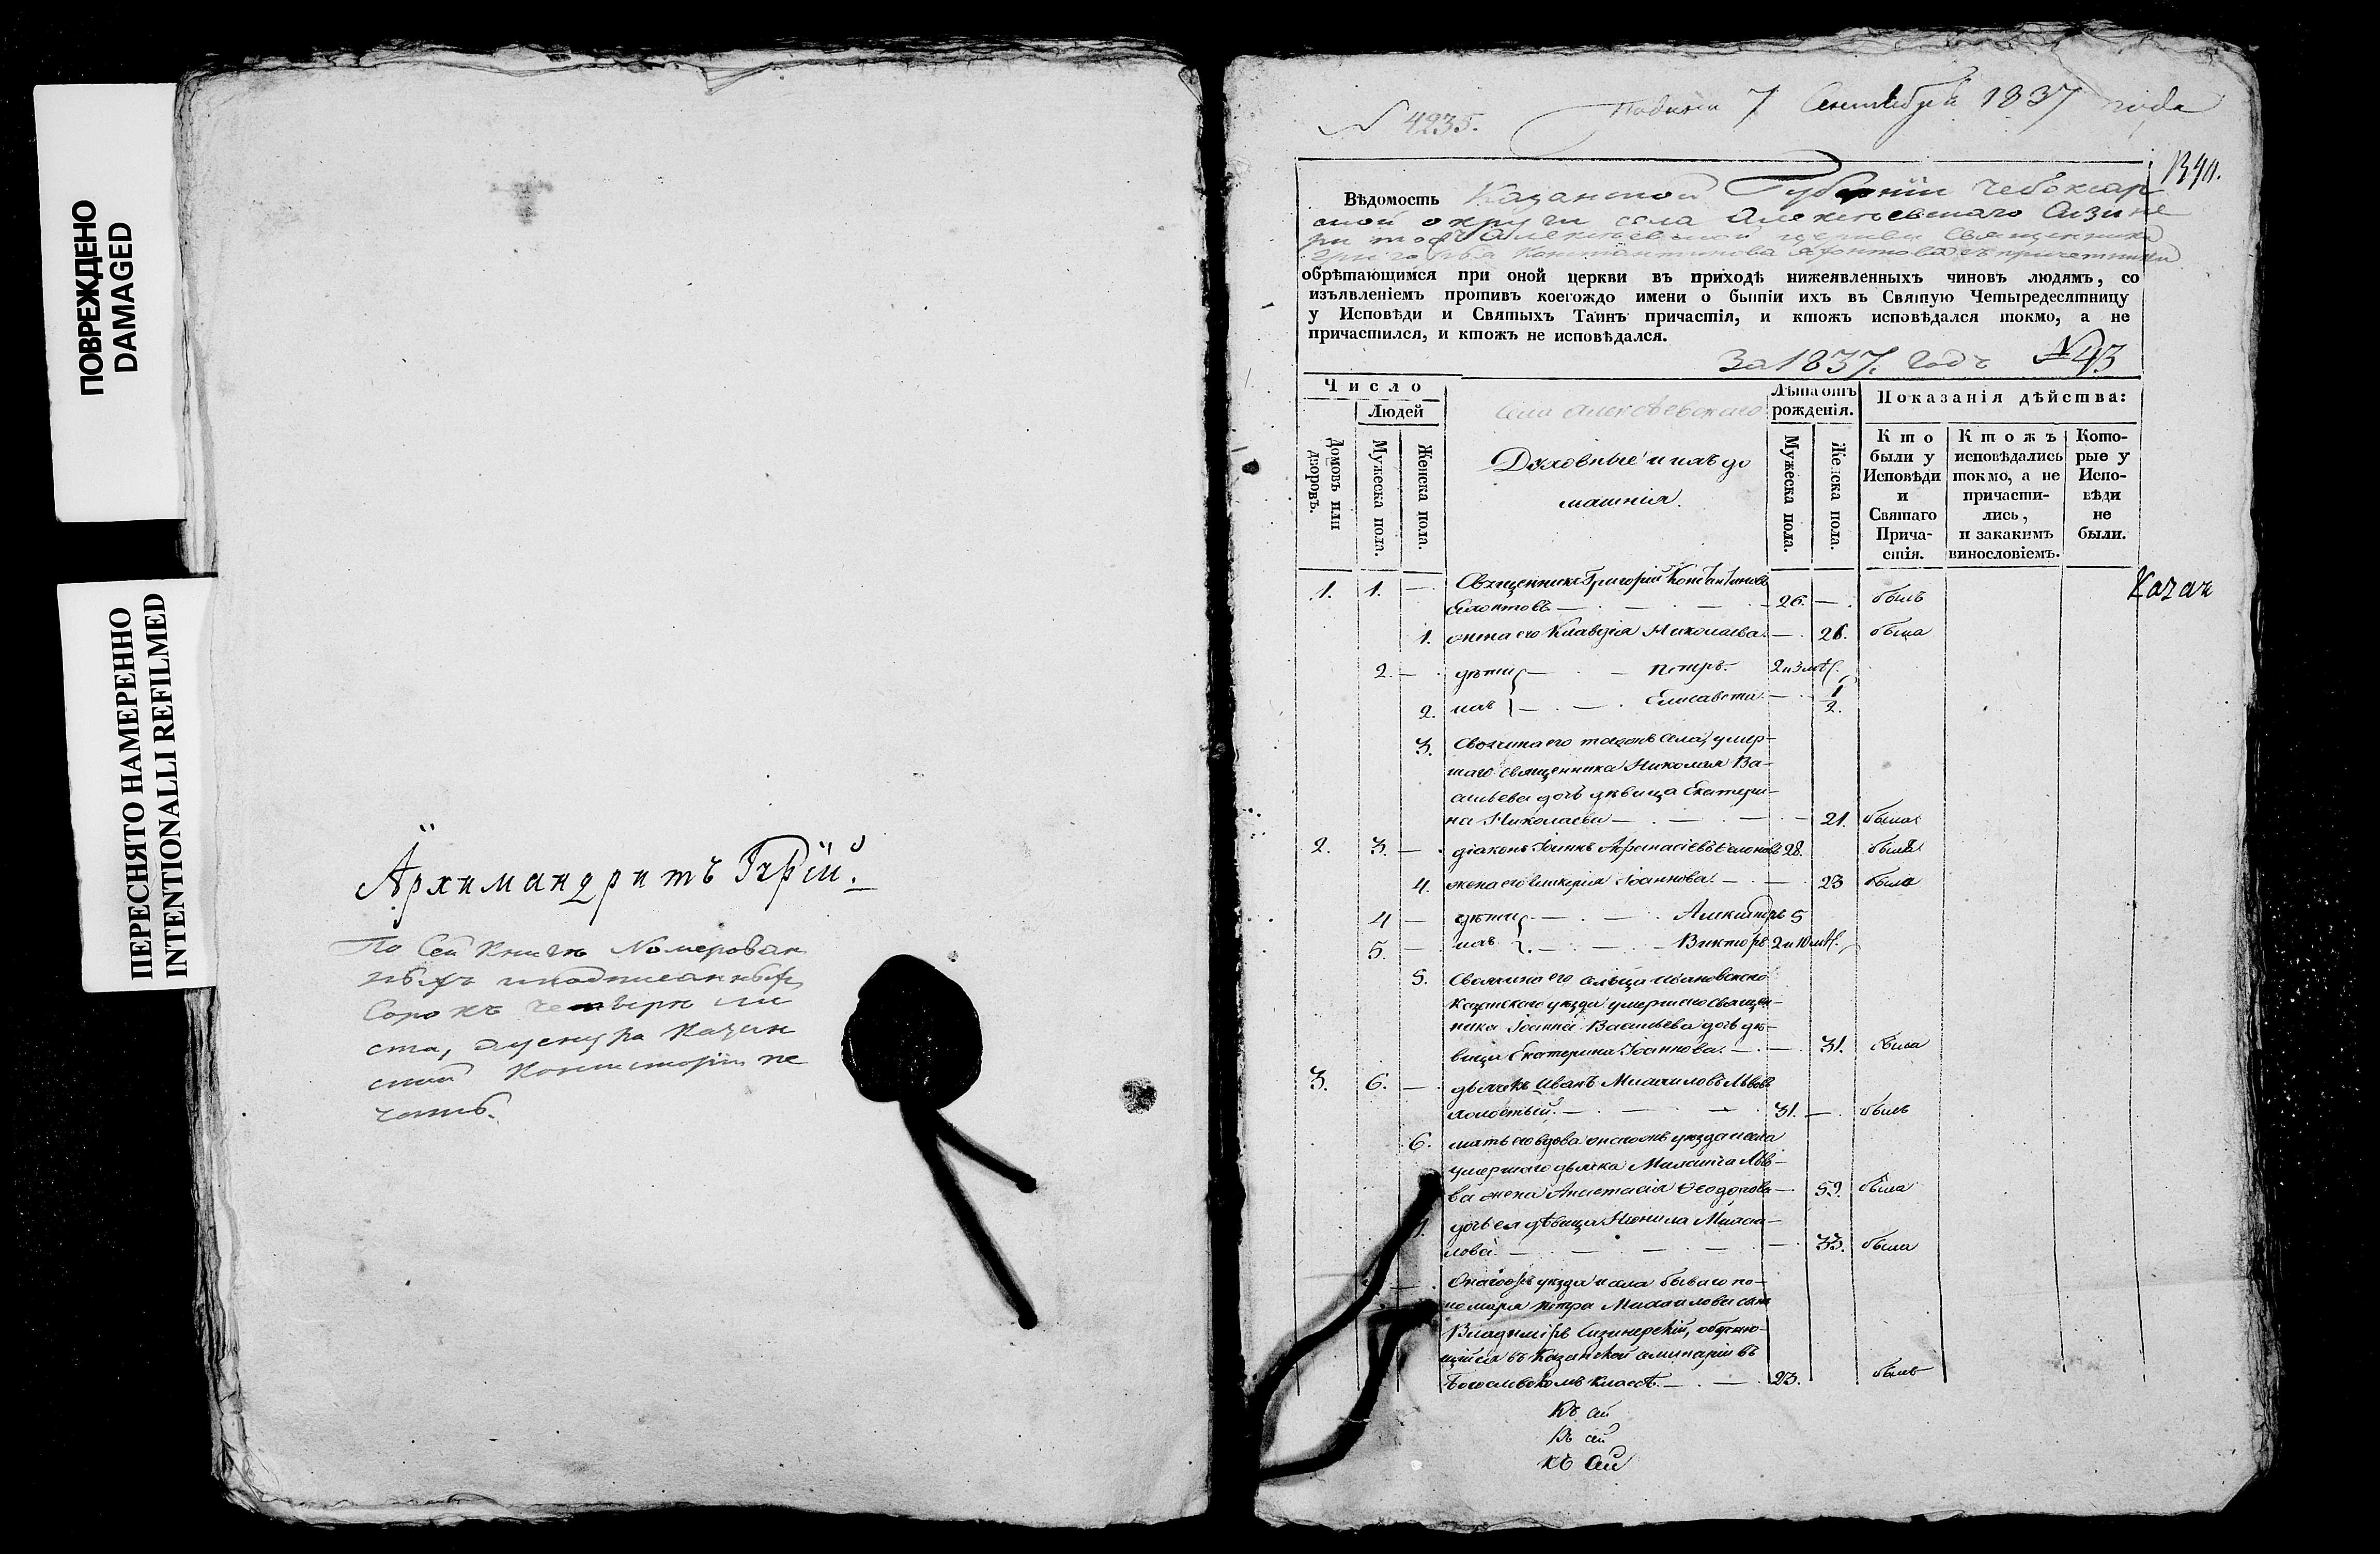 ПОВРЕЖДЕНО
DAMAGED
ПЕРЕСНЯТО НАМЕРЕННО
INTENTIONALLI REFILMED
Архимандритъ Гурій.
По Сей Книгѣ Номерован
ныхъ и подписанныхъ
Сорокъ четыре ли
ста, у сего Казан
ской Консисторіи пе
чать.
№ 4235.
7 Сентября 1837 года
Вѣдомость Казанской Губерніи Чебоксар
ской округи села Алексѣевскаго Сизине
ри тожъ Алексѣевской церкви Священника
Григорья Константинова съ причетники
обрѣтающимся при оной церкви въ приходѣ нижеявленныхъ чиновъ людямъ, со
изъявленіемъ противъ коегождо имени о бытіи ихъ въ Святую Четыредесятницу
у Исповѣди и Святыхъ Таинъ причастія, и ктожъ исповѣдался токмо, а не
причастился, и ктожъ не исповѣдался.
За 1837. Годъ №43
Число
Людей
Домовъ или дворовъ.
Мужеска пола.
Женска пола.
села Алексѣевскаго
Духовные и ихъ до
машнія.
Лѣта отъ рожденія.
Мужеска пола.
Женска пола.
Показанія дѣйства:
Кто были у Исповѣди и Святаго Причастія.
Ктожъ исповѣдались токмо, а не причастились, и закакимъ винословіемъ.
Которые у Исповѣди не были.
1. 1. — Священникъ Григорій Константиновъ
26. — былъ
1. жена его Клавдія Николаева — 26. была
2. — дѣти Петръ 2 и 3 мѣс.
2. ихъ Елисавета — 1/2.
3. Своячина его тогожъ села, умер-
шаго священника Николая Ва-
сильева дочь дѣвица Екатери-
на Николаева — 21. была
2. 3. — діаконъ Іоаннъ Афанасіевъ 28. былъ
4. жена его Іоаннова — 23 была
4 — дѣти Александръ 5
5. — ихъ Викторъ 2 и 10 мѣс.
5. Своячина его сельца Ивановскаго
Казанскаго уѣзда умершаго священ-
ника Іоанна Васильева дочь дѣ-
вица Екатерина Іоаннова — 31. была
3. 6. — дьячекъ Иванъ Михаиловъ Львовъ
холостый — 31. — былъ
6. мать его вдова онагожъ уѣзда и села
умершаго дьячка Михаила Льво-
ва жена Анастасія Ѳеодорова — 59. была
дочь ея дѣвица Неонила Михаи-
лова — 33. была
Онагожъ уѣзда и села бываго по-
номаря Петра Михаилова сынъ
Владиміръ Сизинерскій, обучаю-
щійся въ Казанской семинаріи въ
Богословскомъ классѣ. — 23. былъ
Къ сей
Къ сей
Къ сей